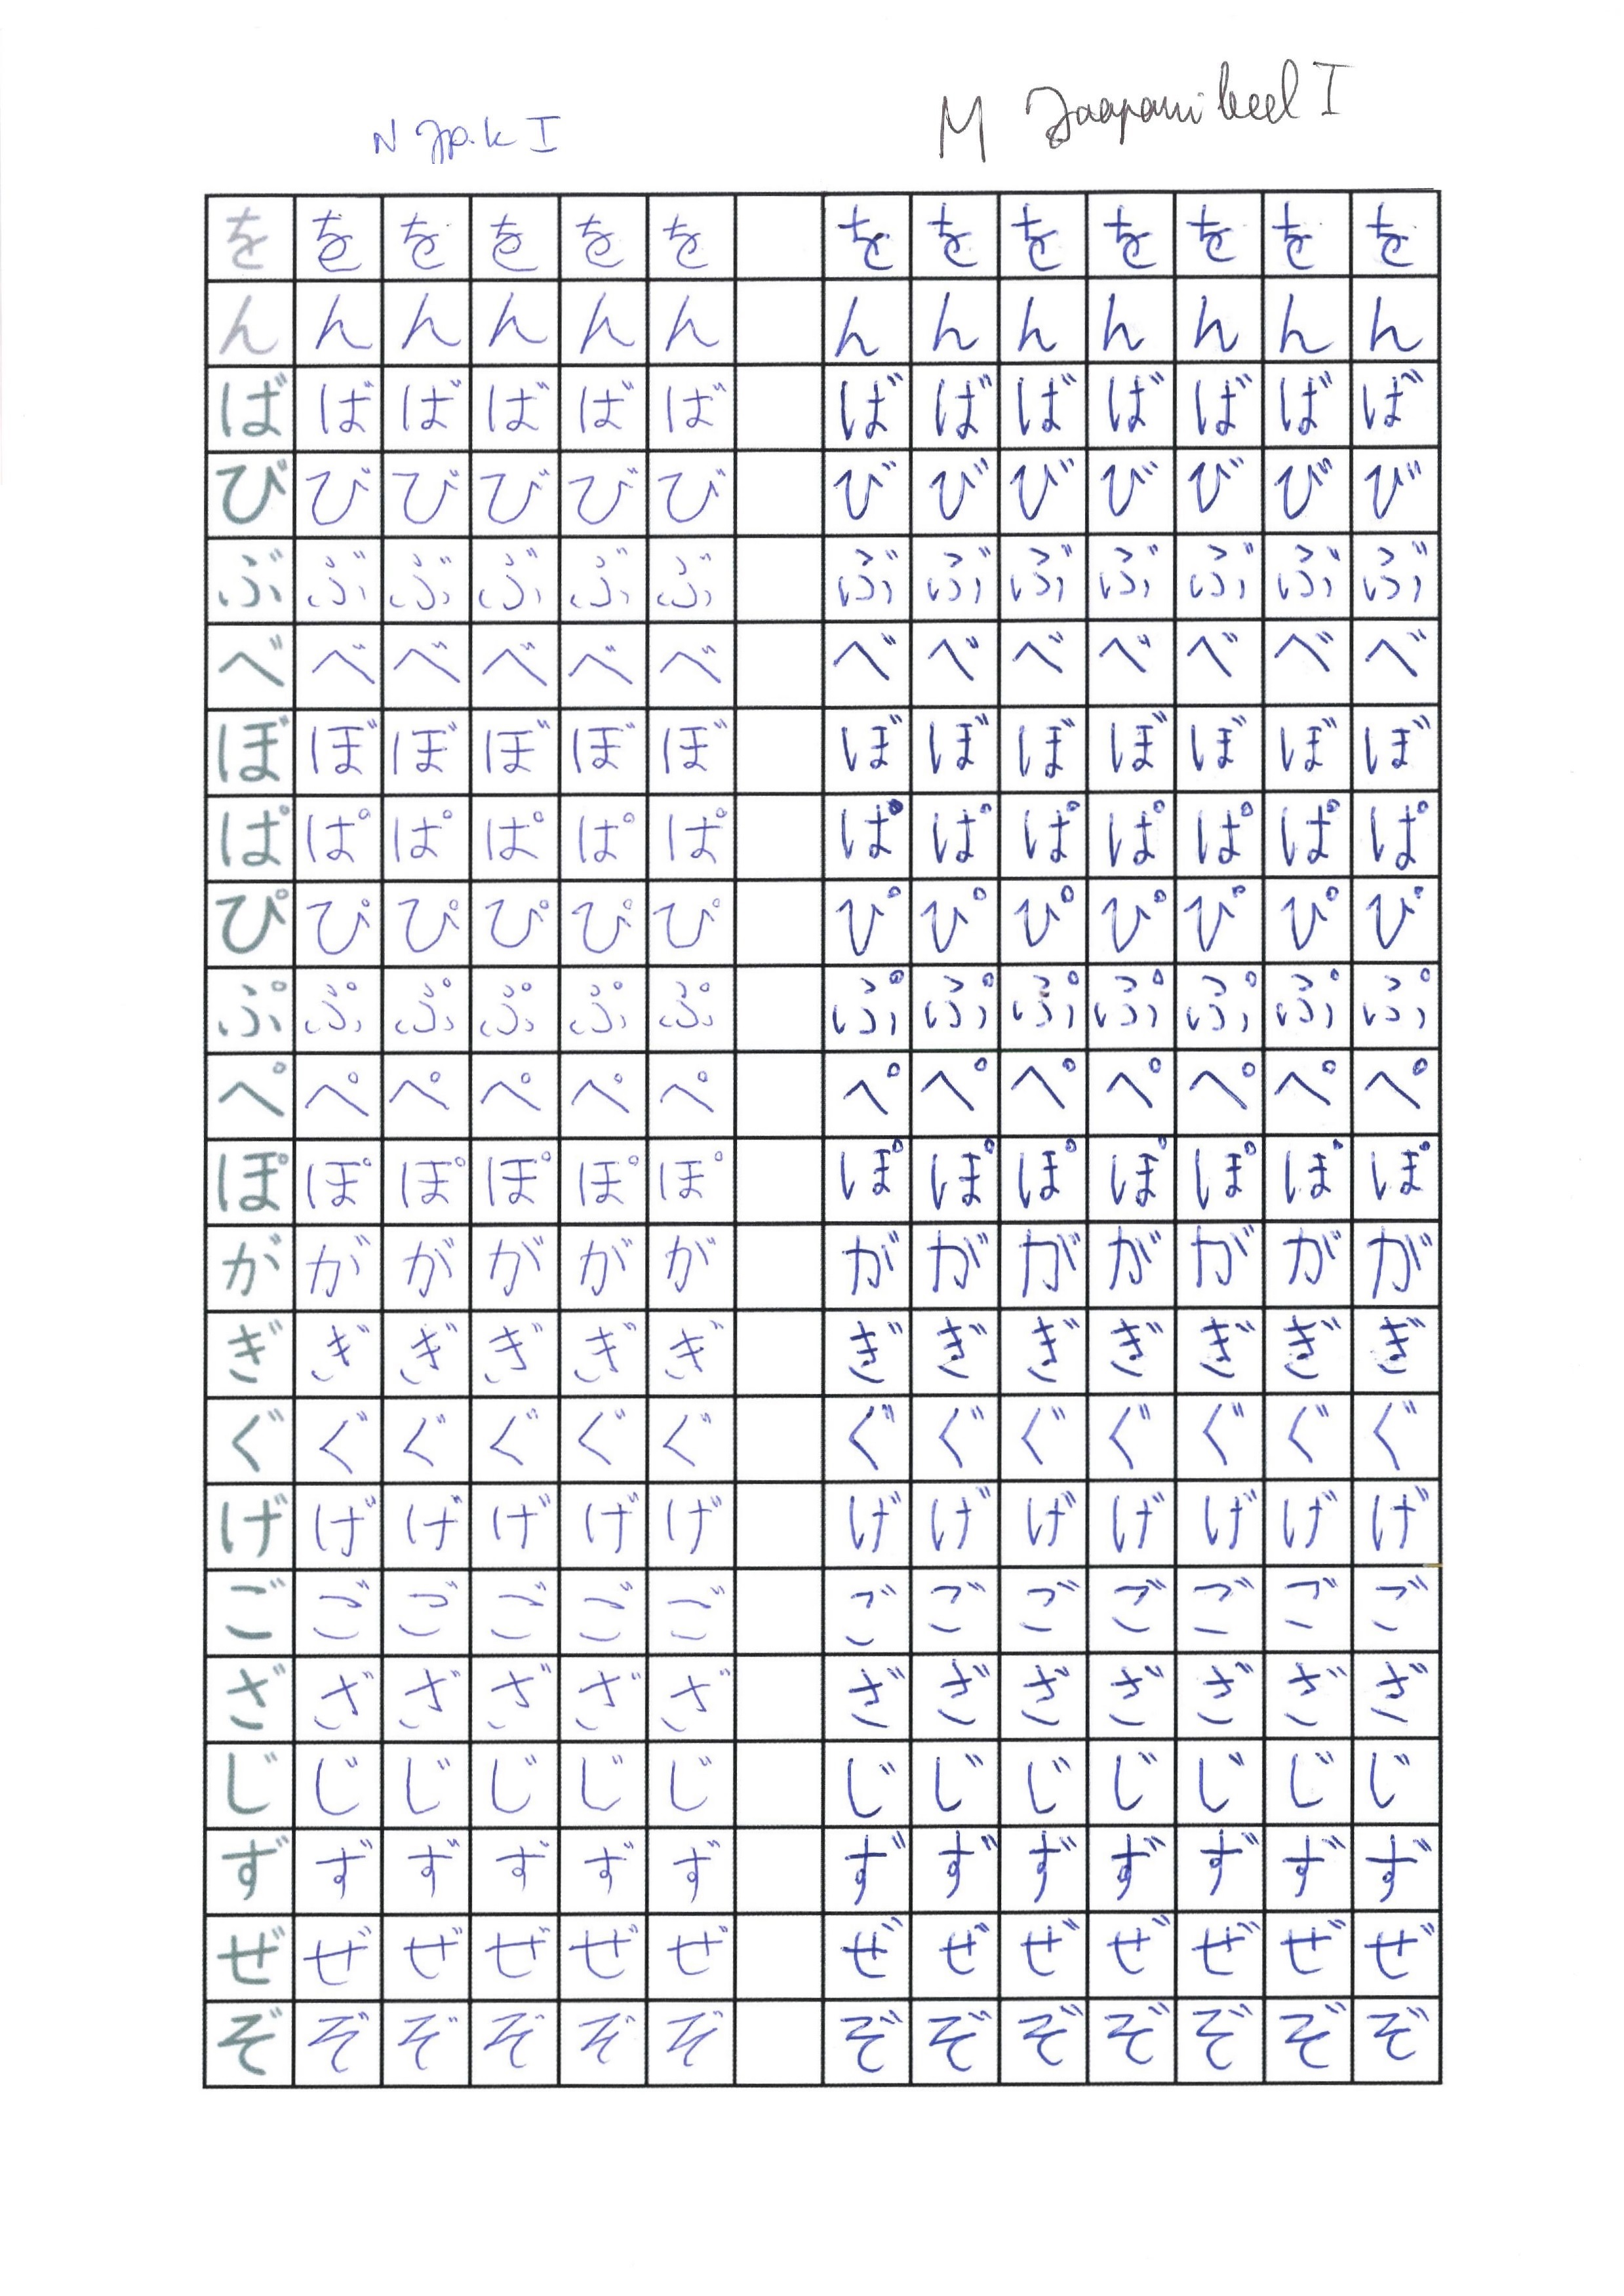 N Jp.k I
M Jaapani keel I
を を を を を を を を を を を を を
ん ん ん ん ん ん ん ん ん ん ん ん ん
ば ば ば ば ば ば ば ば ば ば ば ば ば
び び び び び び び び び び び び び
ぶ ぶ ぶ ぶ ぶ ぶ ぶ ぶ ぶ ぶ ぶ ぶ ぶ
べ べ べ べ べ べ べ べ べ べ べ べ べ
ぼ ぼ ぼ ぼ ぼ ぼ ぼ ぼ ぼ ぼ ぼ ぼ ぼ
ぱ ぱ ぱ ぱ ぱ ぱ ぱ ぱ ぱ ぱ ぱ ぱ ぱ
ぴ ぴ ぴ ぴ ぴ ぴ ぴ ぴ ぴ ぴ ぴ ぴ ぴ
ぷ ぷ ぷ ぷ ぷ ぷ ぷ ぷ ぷ ぷ ぷ ぷ ぷ
ぺ ぺ ぺ ぺ ぺ ぺ ぺ ぺ ぺ ぺ ぺ ぺ ぺ
ぽ ぽ ぽ ぽ ぽ ぽ ぽ ぽ ぽ ぽ ぽ ぽ ぽ
が が が が が が が が が が が が が
ぎ ぎ ぎ ぎ ぎ ぎ ぎ ぎ ぎ ぎ ぎ ぎ ぎ
ぐ ぐ ぐ ぐ ぐ ぐ ぐ ぐ ぐ ぐ ぐ ぐ ぐ
げ げ げ げ げ げ げ げ げ げ げ げ げ
ご ご ご ご ご ご ご ご ご ご ご ご ご
ざ ざ ざ ざ ざ ざ ざ ざ ざ ざ ざ ざ ざ
じ じ じ じ じ じ じ じ じ じ じ じ じ
ず ず ず ず ず ず ず ず ず ず ず ず ず
ぜ ぜ ぜ ぜ ぜ ぜ ぜ ぜ ぜ ぜ ぜ ぜ ぜ
ぞ ぞ ぞ ぞ ぞ ぞ ぞ ぞ ぞ ぞ ぞ ぞ ぞ